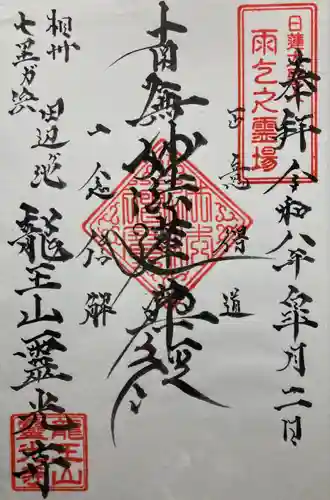 日蓮大聖人
雨乞之霊場
奉拝 令和八年 皐月二日
正意得道
南無妙法蓮華経
一念信解
相州
七里ガ浜 田辺池
龍王山靈光寺
龍王山
霊光寺